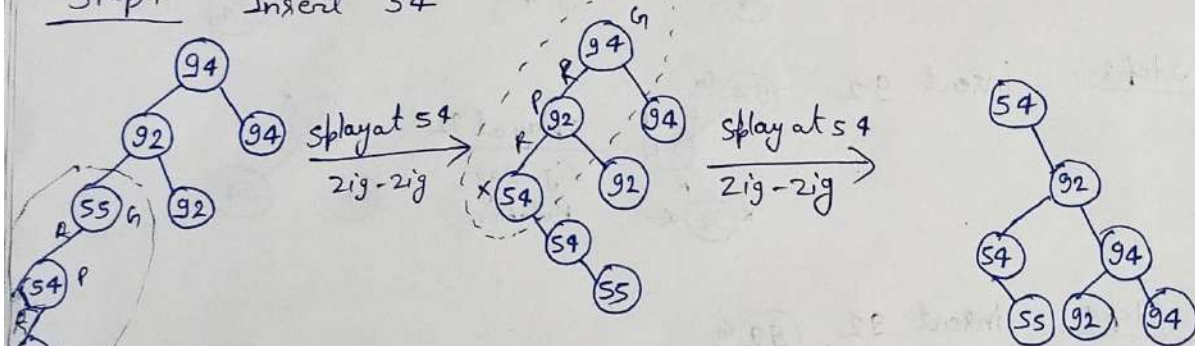 Insert 54
94
92
94
55 G
92
R
54 P
R
Splay at 54
zig-zig
G
94
R
P
92
94
R
X 54
92
54
55
Splay at 54
zig-zig
54
92
54
94
55
92
94